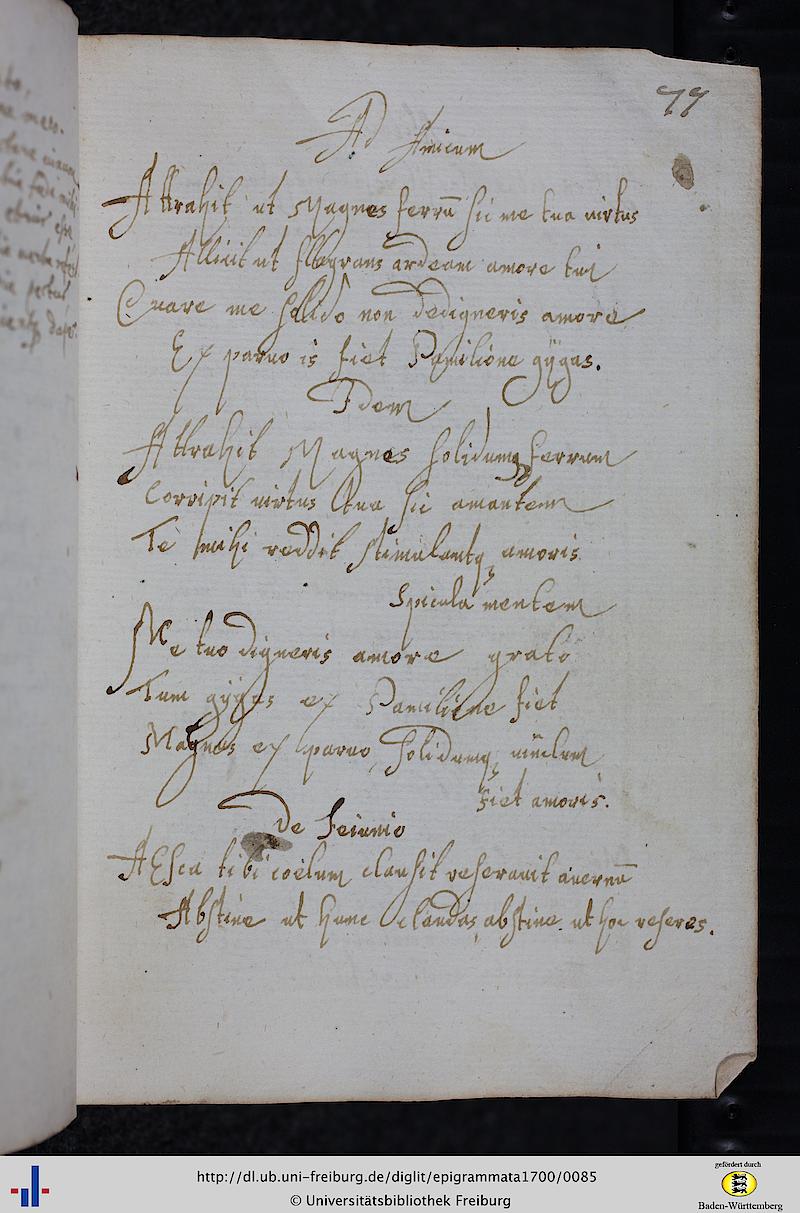 77
Ad Amicum
Attrahit ut Magnes ferrū sic me tua virtus
Allicit ut flagrans ardeam amore tui
Quare me solido non dedigneris amore
Ex parvo is fiet Pamilione gÿgas.
Idem
Attrahit Magnes solidumq ferrum
Corripit virtus tua sic amantem
Te mihi reddit stimulantq amoris
spicula mentem
Me tuo digneris amore grato
Tum gÿgas ex Pamilione fiet
Magnus ex parvo, solidumq
fiet amoris.
De Jeiunio
AEsca tibi coelum clausit reseravit avernū
Abstine ut hunc claudas, abstine ut hoc reseres.
http://dl.ub.uni-freiburg.de/diglit/epigrammata1700/0085
© Universitätsbibliothek Freiburg
gefördert durch
Baden-Württemberg